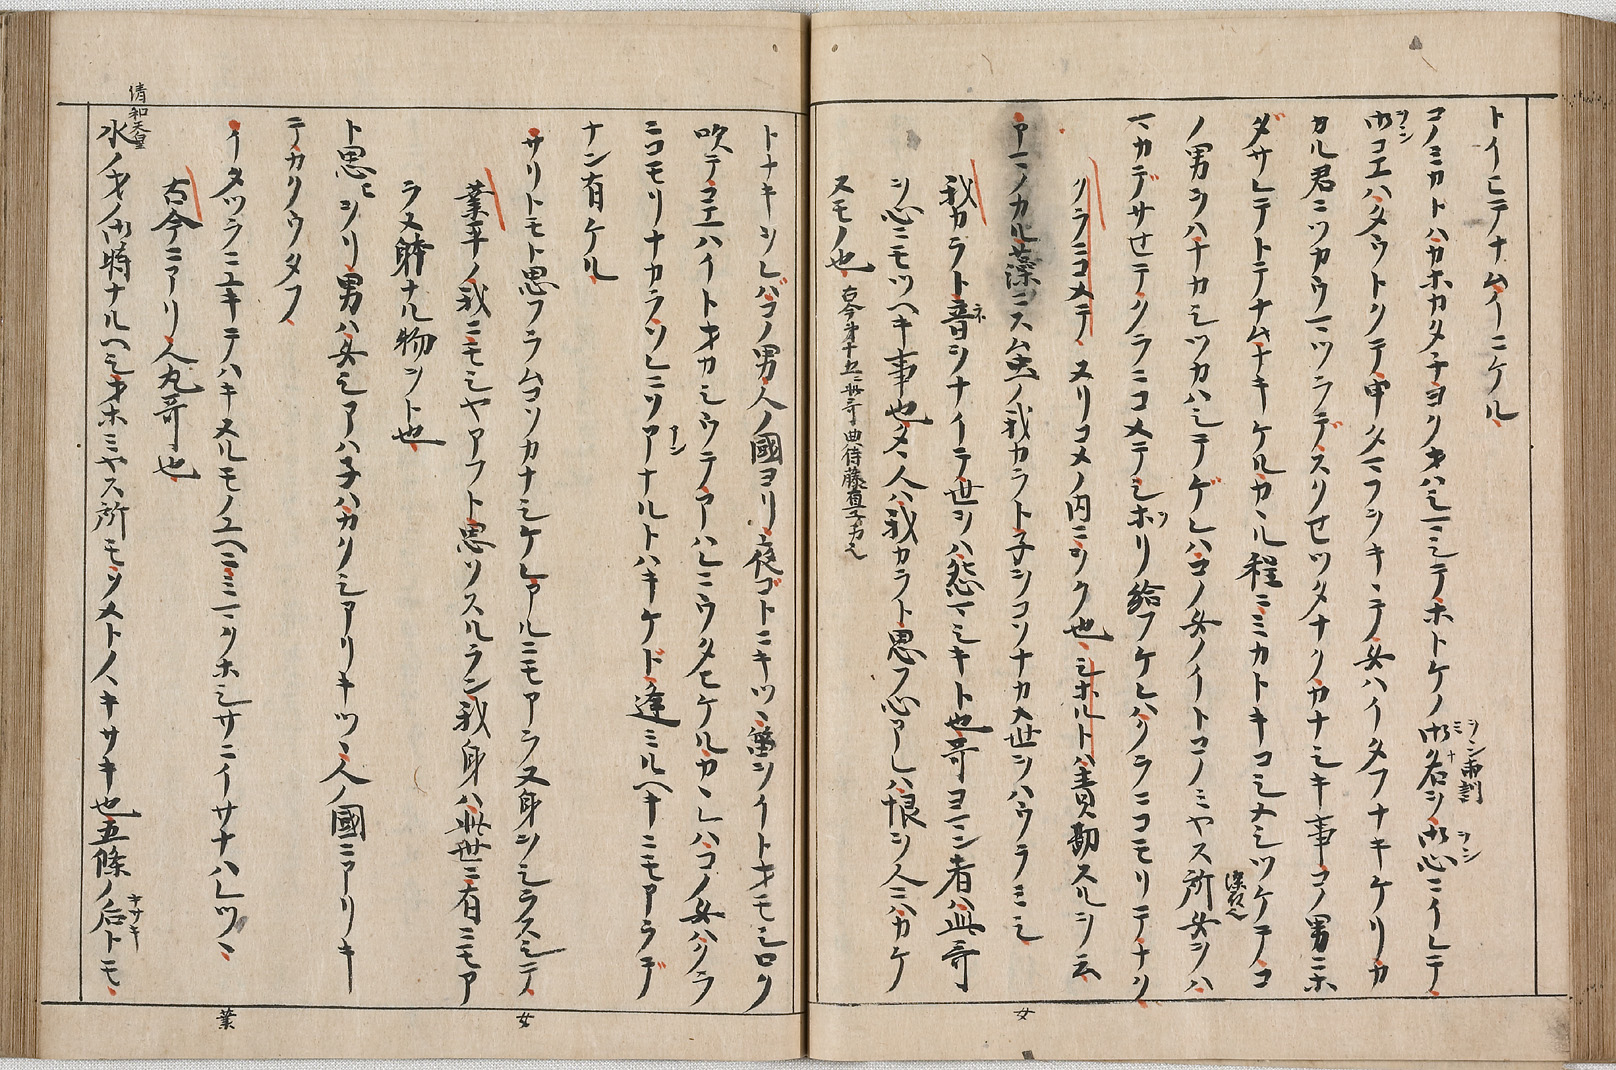 トイヒテナムイニケル
コノミカトハカホカタチヨクオハシマシテホトケノ御名ヲ御心ニイレテ
御コエハタウトクテ申タマフヲキヽテ女ハイタフナキケリカ
カル君ニツカウマツラデスクセツタナクカナシキ事コノ男ニホ
ダサレテトテナムナキケルカヽル程ニミカトキコシメシツケテコ
ノ男ヲハナカシツカハシテゲレハコノ女ノイトコノミヤス所女ヲハ
マカデサセテクラニコメテシホリ給フケレハクラニコモリテナク
クラニコメテヌリコメノ内ニヲク也シホルトハ責勘スルヲ云
アマノカル藻ニスム虫ノ我カラト子ヲコソナカメ世ヲハウラミシ
我カラト音ヲナイテ世ヲハ恣マシキト也哥ヨマン者ハ此哥
ヲ心ニモツヘキ事也タヽ人ハ我カラト思フ心アレハ恨ヲ人ニハカケ
スモノ也 古今第十五ニ此哥典侍藤直子哥也
女
トナキヲレバコノ男人ノ國ヨリ夜ゴトニキツヽ笛ヲイトオモシロク
吹テコエハイトオカシウテアハレニウタヒケルカヽレハコノ女ハクラ
ニコモリナカラソレニソアナルトハキケド逢ミルヘキニモアラデ
ナン有ケル
サリトモト思フラムコソカナシケレアルニモアラヌ身ヲシラスシテ
業平ノ我ニモシヤアフト思ソスルラン我身ハ此世ニ有ニモア
ラヌ躰ナル物ヲト也
ト思ヒヲリ男ハ女シアハ子ハカクシアリキツヽ人ノ國ニアリキ
テカクウタフ
イタツラニユキテハキヌルモノユヘニミマクホシサニイサナハレツヽ
古今ニアリ人丸哥也
清和天皇
水ノオノ御時ナルヘシオホミヤス所モソメトノヽキサキ也五條ノ后トモ
女
業